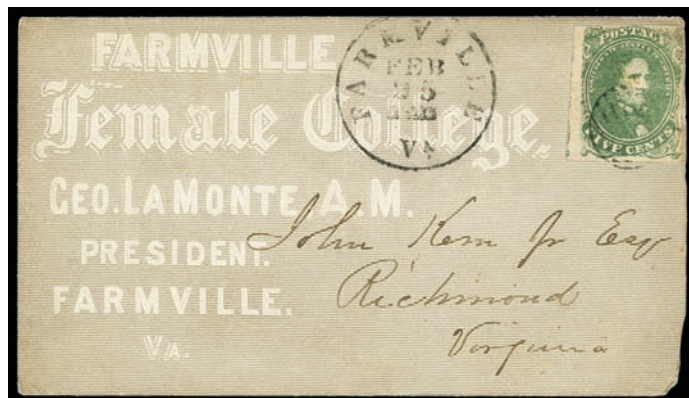 FARMVILLE
Female College.
GEO. LAMONTE, A. M.
PRESIDENT.
FARMVILLE.
VA.
FARMVILLE
FEB
25
VA
POSTAGE
FIVE CENTS
John Kern Jr Esqr
Richmond
Virginia